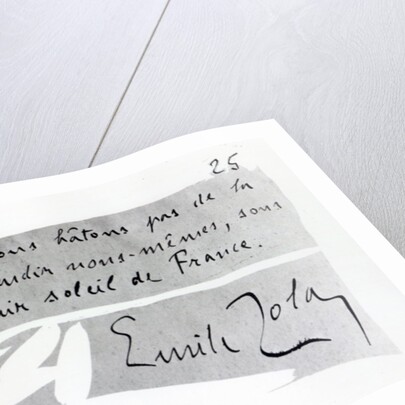 25
ons hâtons pas de la
nous-mêmes, sous
soleil de France.
Emile Zola